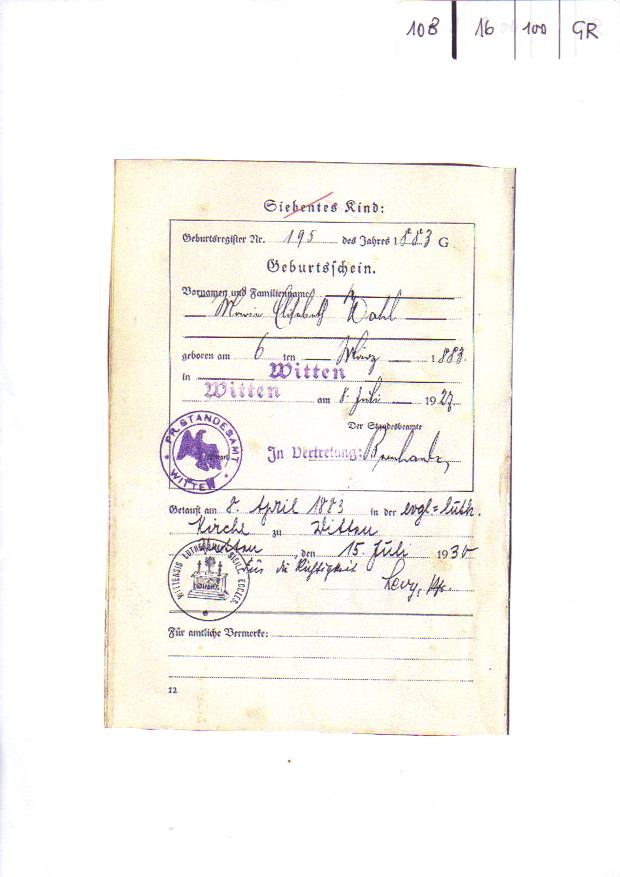 108 16 100 GR
Siebentes Kind:
Geburtsregister Nr. 195 des Jahres 1883 G
Geburtsschein.
Vornamen und Familienname
Marie Elisabeth Wahl
geboren am 6 ten März 1883.
in Witten
Witten am 8. Juli 1927
Der Standesbeamte
In Vertretung:
PR. STANDESAMT
WITTEN
Getauft am 8. April 1883 in der evgl=luth.
Kirche zu Witten
Witten, den 15. Juli 1930
für die Richtigkeit
Für amtliche Vermerke:
12